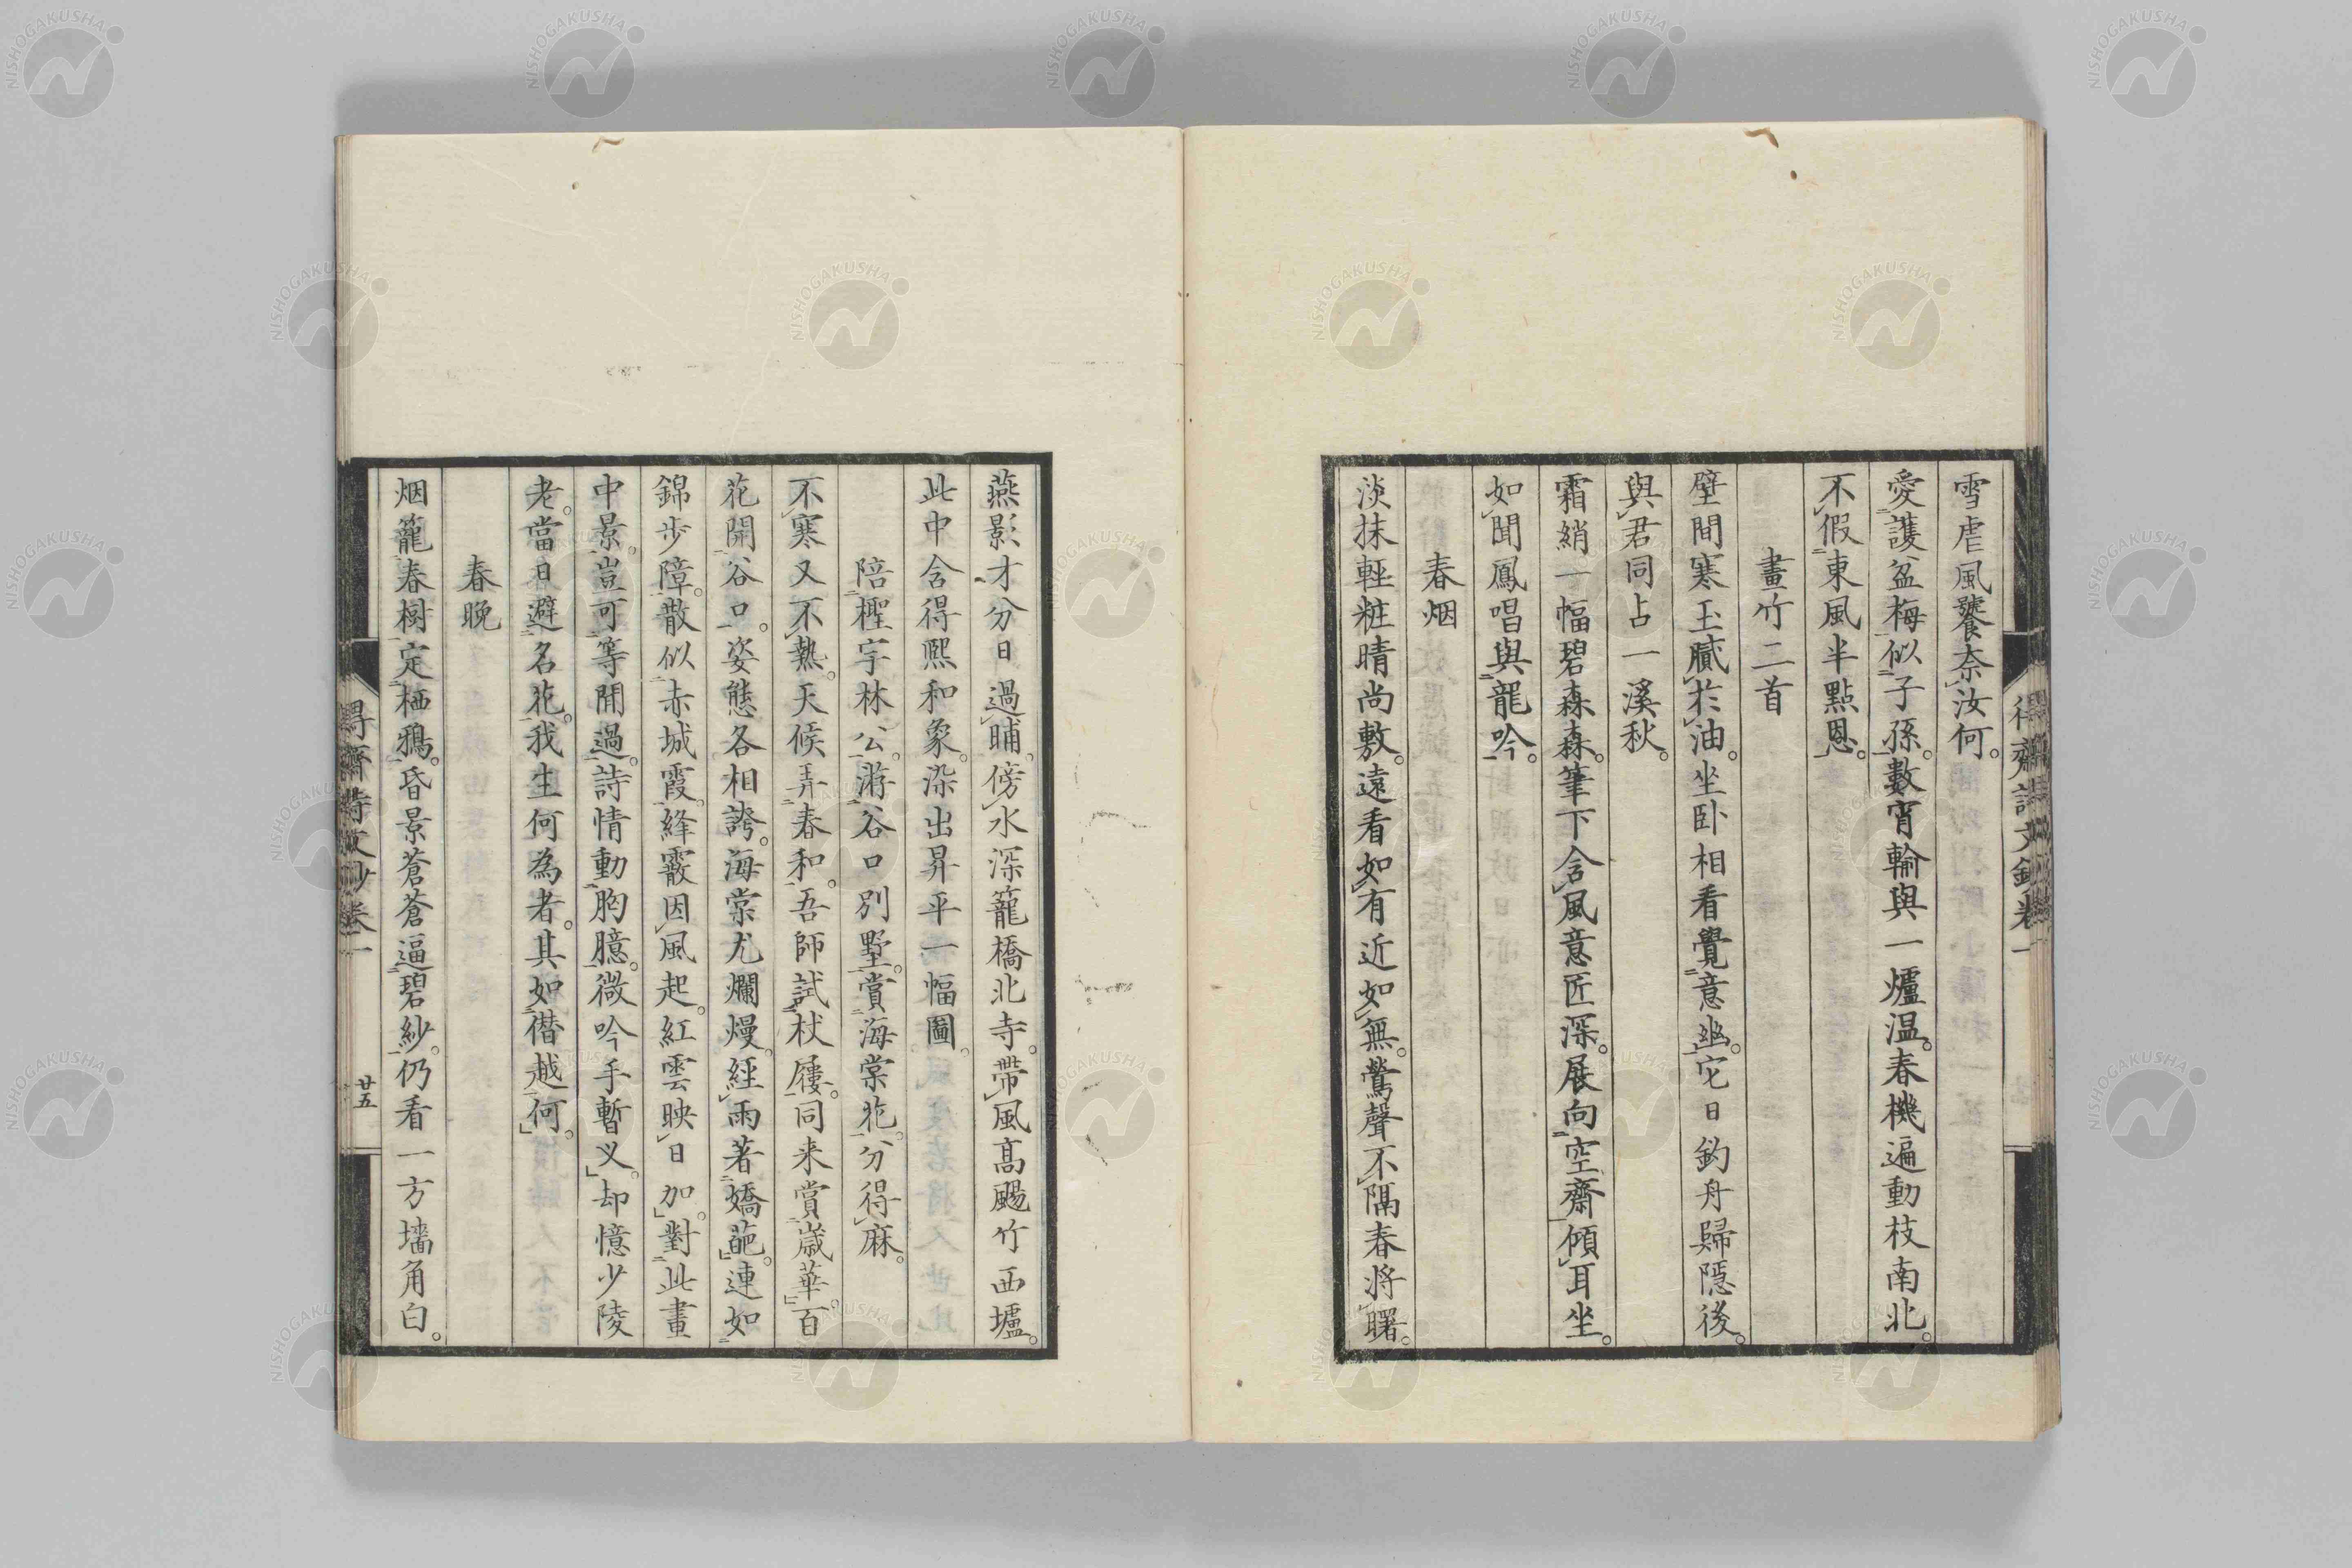 雪虐風饕奈汝何。
愛護盆梅似子孫。數宵輸與一爐温。春機遍動枝南北。
不假東風半點恩。
畫竹二首
壁間寒玉膩於油。坐卧相看覺意幽。它日釣舟歸隱後。
與君同占一溪秋。
霜綃一幅碧森森。筆下含風意匠深。展向空齋傾耳坐。
如聞鳳唱與龍吟。
春烟
淡抹輕粧晴尚敷。遠看如有近如無。鶯聲不隔春將曙。
燕影才分日過晡。傍水深籠橋北寺。帶風高颺竹西壚。
此中含得熙和象。染出昇平一幅圖。
陪檉宇林公。游谷口別墅。賞海棠花。分得麻。
不寒又不熱。天候弄春和。吾師試杖屨。同来賞歳華。百
花開谷口。姿態各相誇。海棠尤爛熳。經雨著嬌葩。連如
錦步障。散似赤城霞。絳霰因風起。紅雲映日加。對此畫
中景。豈可等閒過。詩情動胸臆。微吟手暫义。却憶少陵
老。當日避名花。我生何為者。其如僣越何。
春晚
烟籠春樹定栖鴉。昏景蒼蒼逼碧紗。仍看一方墻角白。
得齋詩文鈔卷一
廿五